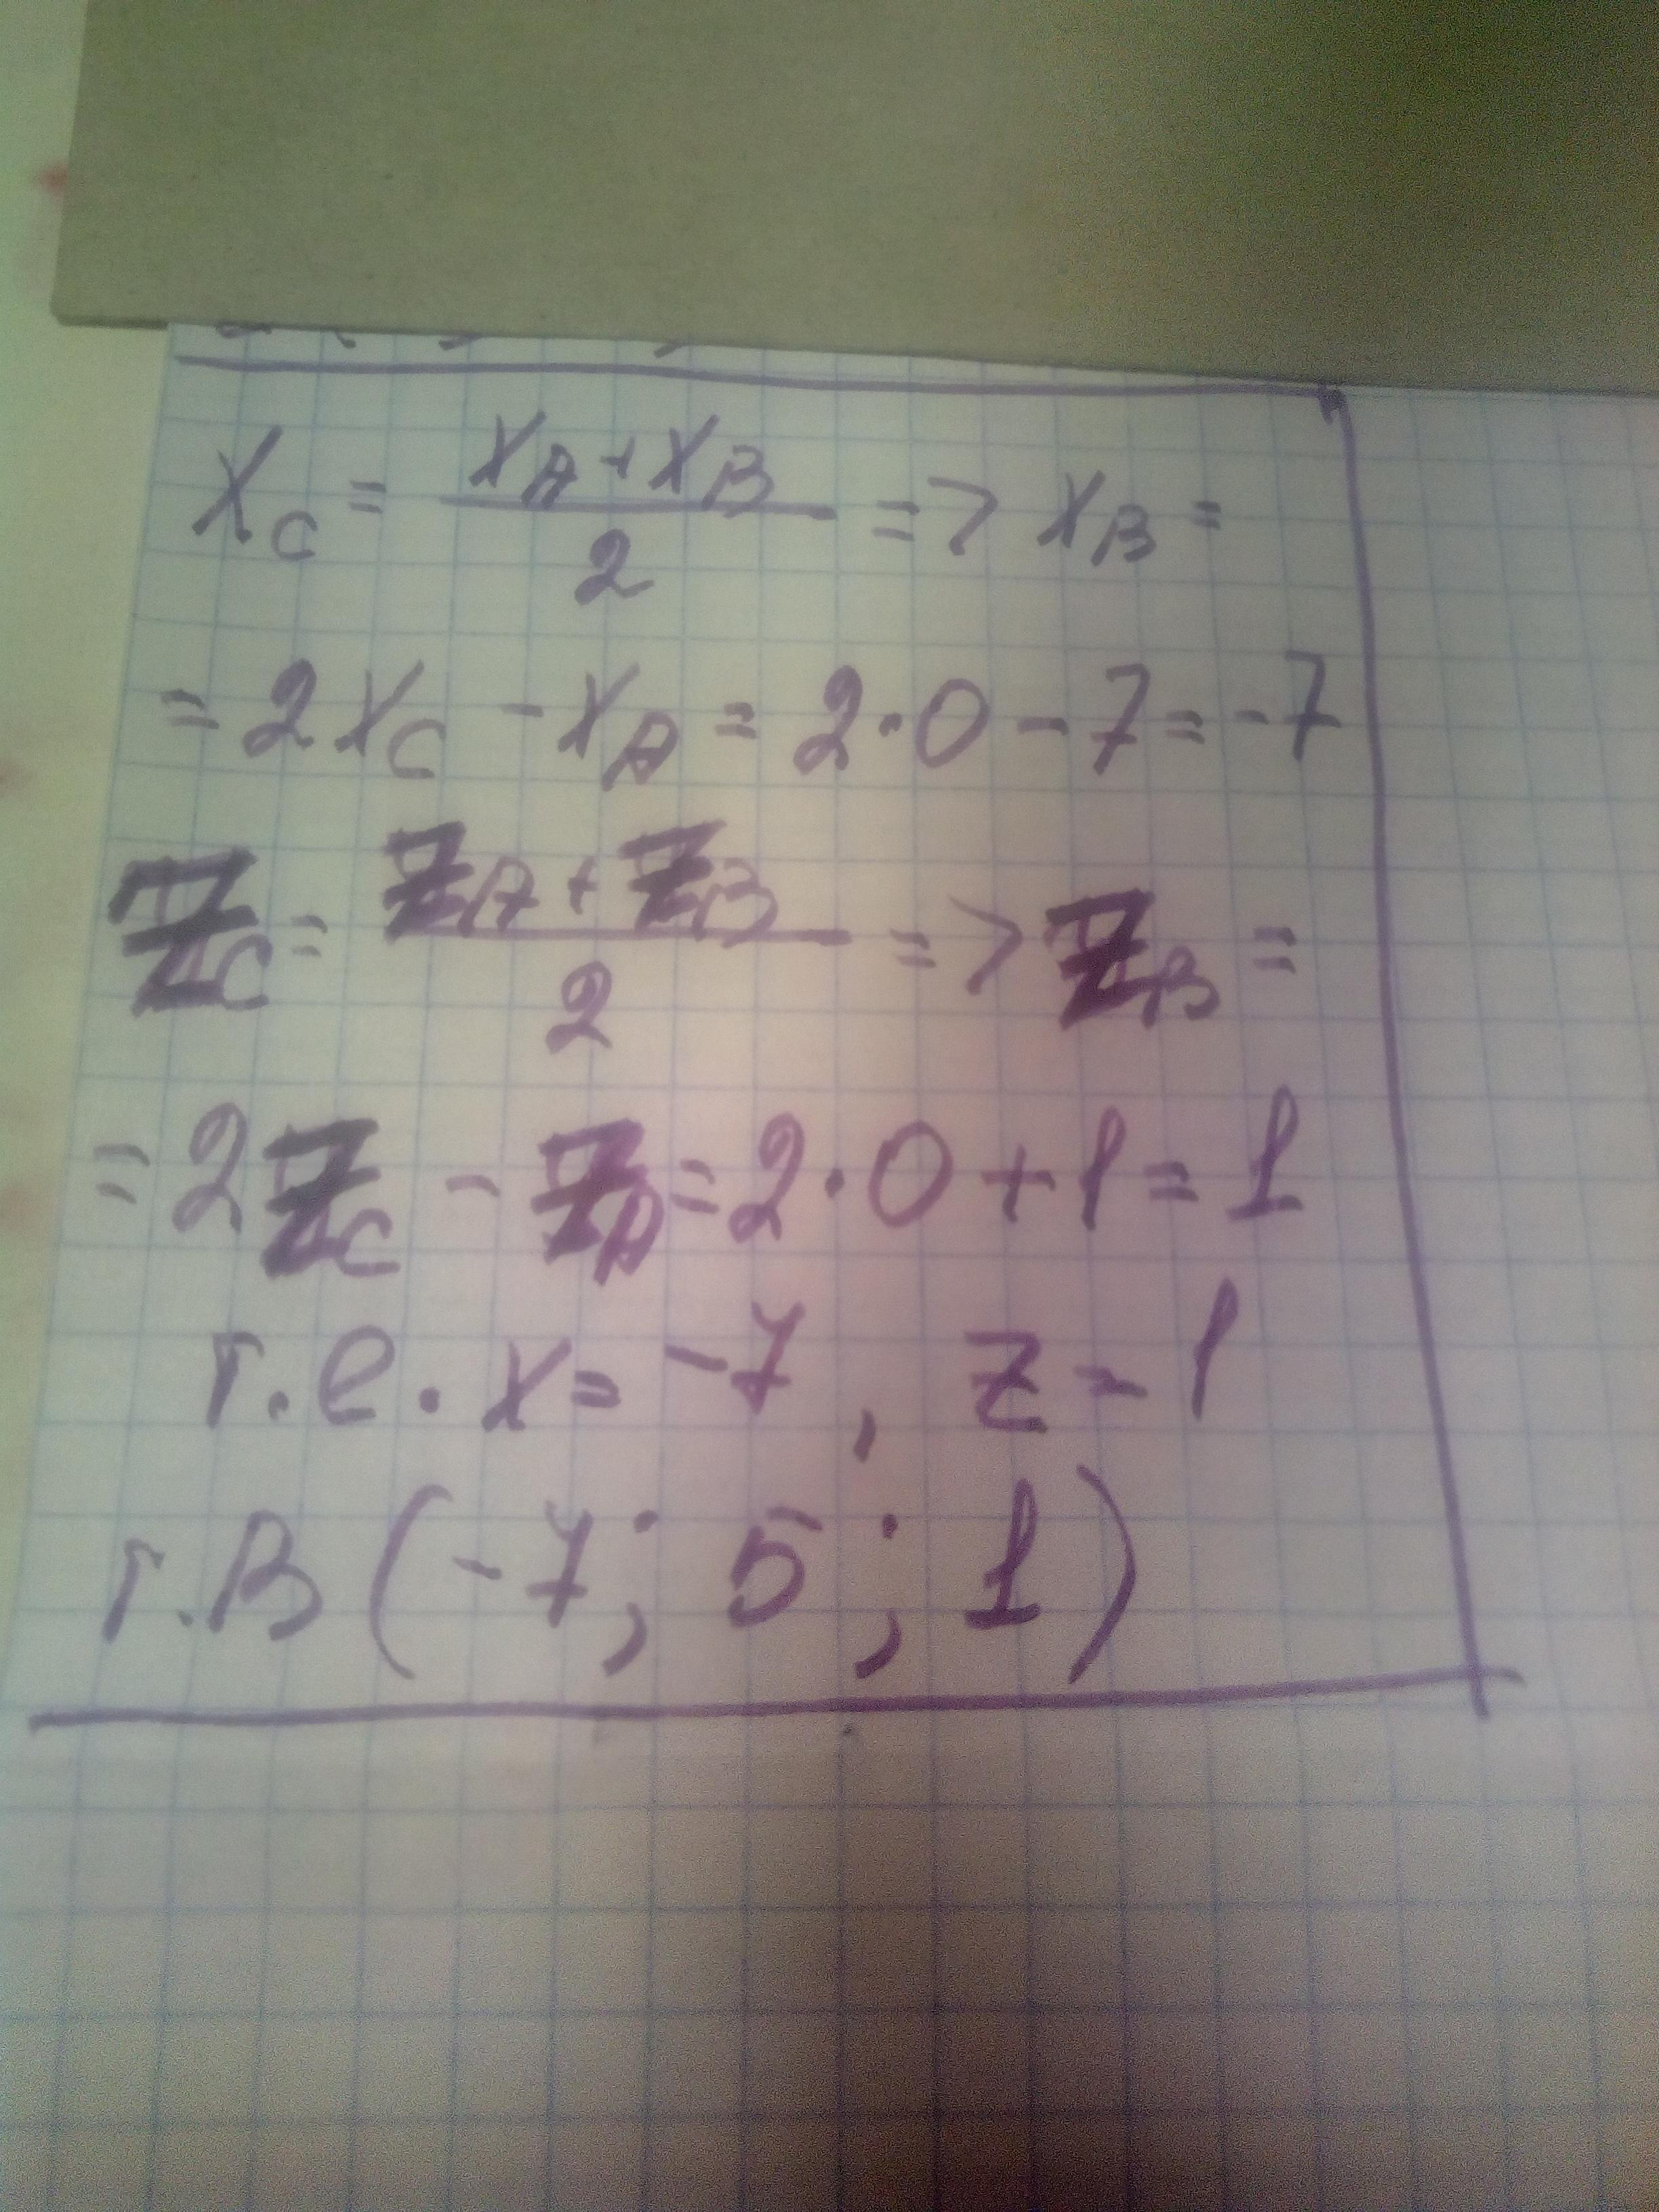 x_C = (x_A + x_B)/2 => x_B =
= 2x_C - x_A = 2·0 - 7 = -7
z_C = (z_A + z_B)/2 => z_B =
= 2z_C - z_A = 2·0 + 1 = 1
т.е. x = -7, z = 1
т.В (-7; 5; 1)